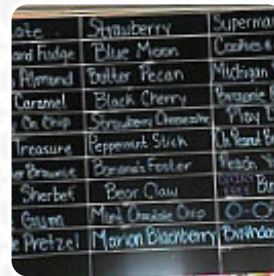 Strawberry Superma
and Fudge Blue Moon Cookies
Almond Butter Pecan Michigan
Caramel Black Cherry Brownie
Chip Strawberry Cheesecake Play
Treasure Peppermint Stick
Brownie Banana's Foster Peach
Sherbet Bear Claw
Gum Mint Chocolate Chip
Pretzel Marion Blackberry Birthday